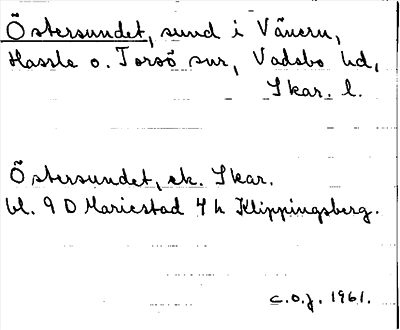 Östersundet, sund i Vänern,
Hassle o. Torsö snr, Vadsbo hd,
Skar. l.
Östersundet, ek. Skar.
bl. 9 D Mariestad 4 h Klippingsberg.
c.o.j. 1961.